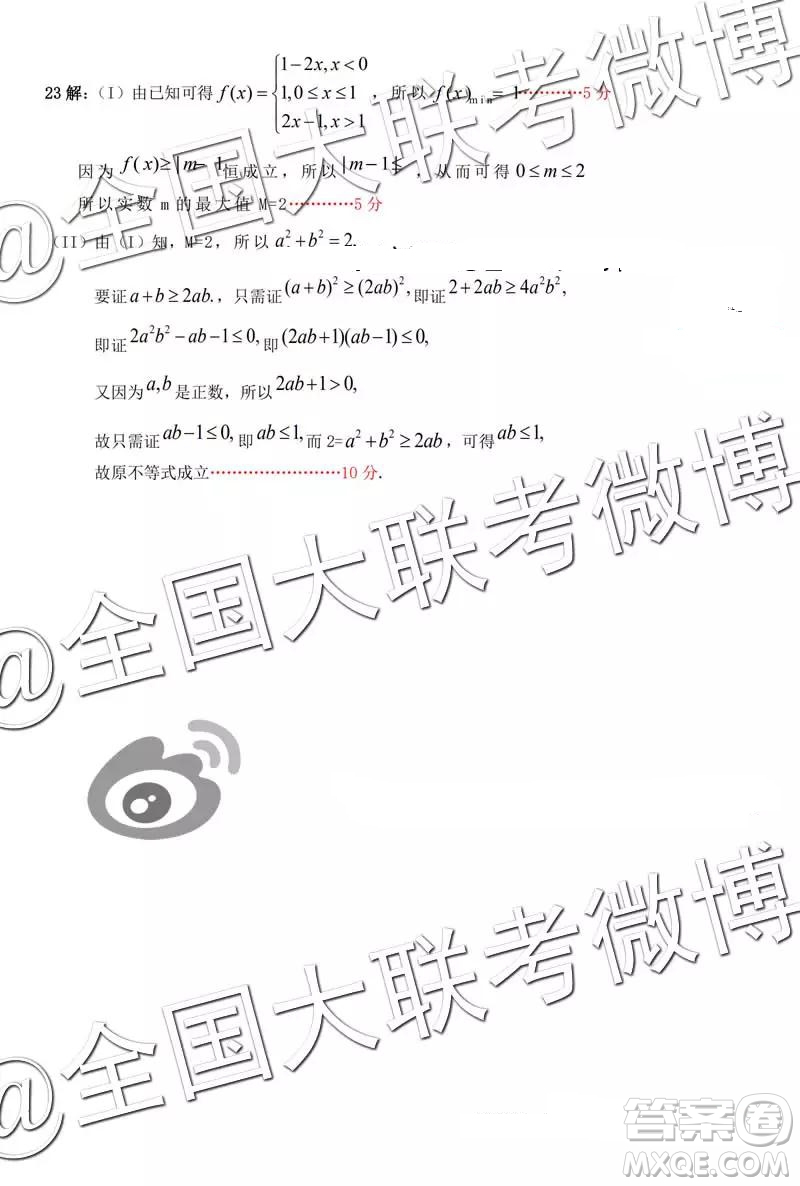 23 解:（I）由已知可得 f(x)={1-2x, x<0 1, 0≤x≤1 2x-1, x>1 ，所以 f(x)min= 1…………5 分
因为 f(x)≥|m− 1恒成立，所以 |m−1|≤ ，从而可得 0≤m≤2
所以实数 m 的最大值 M=2…………5 分
(II）由（I）知，M=2，所以 a²+b²=2.
要证 a+b≥2ab.，只需证 (a+b)²≥(2ab)², 即证 2+2ab≥4a²b²,
即证 2a²b²−ab−1≤0, 即 (2ab+1)(ab−1)≤0,
又因为 a,b 是正数，所以 2ab+1>0,
故只需证 ab−1≤0, 即 ab≤1, 而 2=a²+b²≥2ab，可得 ab≤1,
故原不等式成立……………………10 分.
@全国大联考微博
@全国大联考微博
@全国大联考微博
答案卷
MXQE.COM